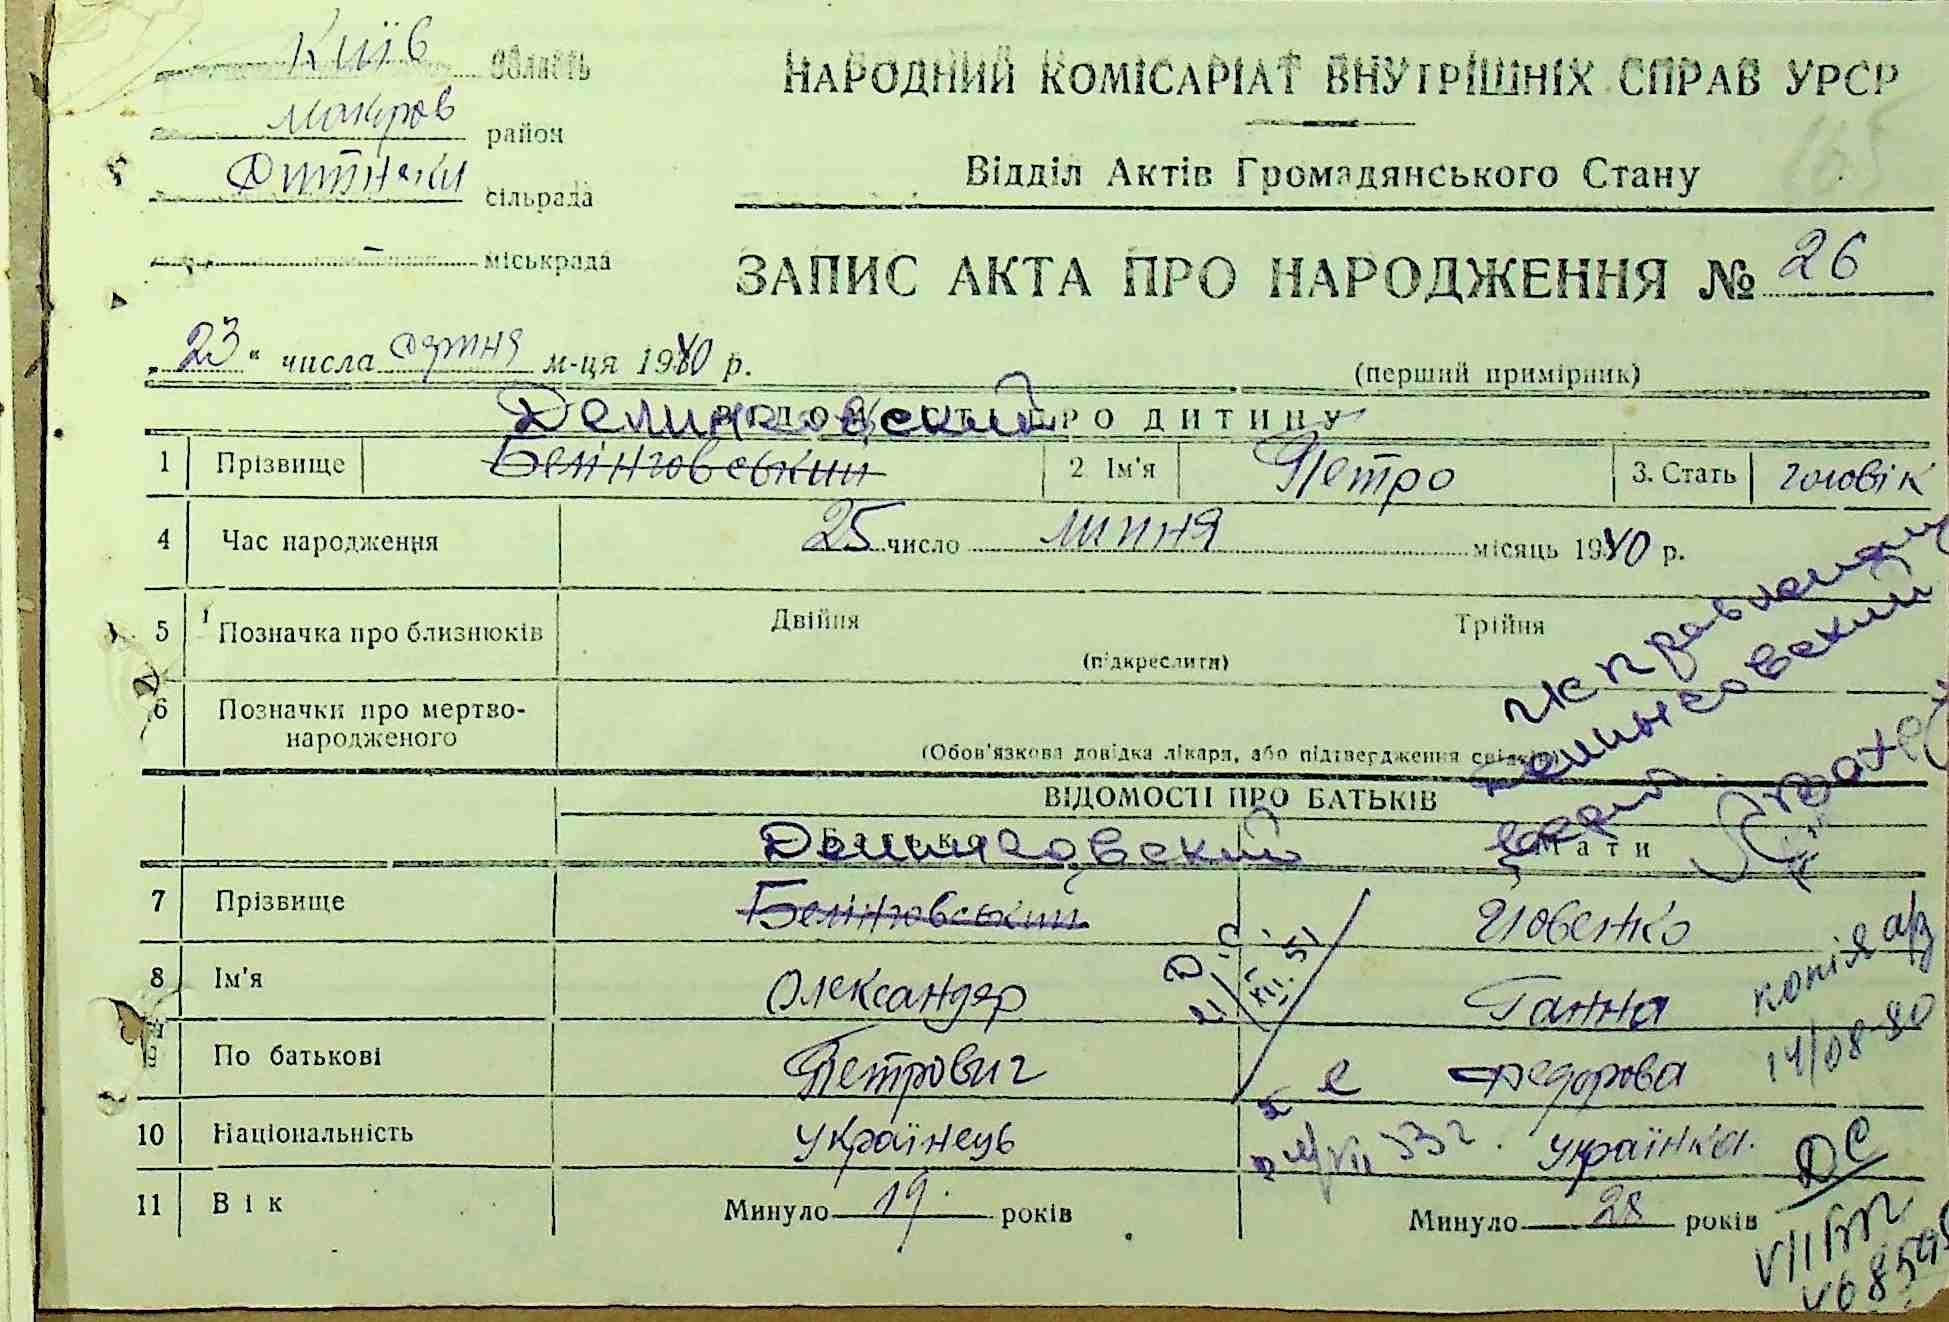 Київ область
Макаров район
Ситняки сільрада
- міськрада
НАРОДНИЙ КОМІСАРІАТ ВНУТРІШНІХ СПРАВ УРСР
165
Відділ Актів Громадянського Стану
ЗАПИС АКТА ПРО НАРОДЖЕННЯ № 26
„23" числа серпня м-ця 1940 р.
(перший примірник)
ВІДОМОСТІ ПРО ДИТИНУ
1 Прізвище Белінговський 2 Ім'я Петро 3. Стать чоловік
4 Час народження 25 число липня місяць 1940 р.
5 Позначка про близнюків Двійня Трійня
(підкреслити)
6 Позначки про мертво-
народженого
(Обов'язкова довідка лікаря, або підтвердження свідків)
ВІДОМОСТІ ПРО БАТЬКІВ
Батько Мати
7 Прізвище Белінговський
8 Ім'я Олександер Ганна
9 По батькові Петрович Федорова
10 Національність Українець Українка
11 Вік Минуло 19 років Минуло 28 років
копія
14/08-80
ДС